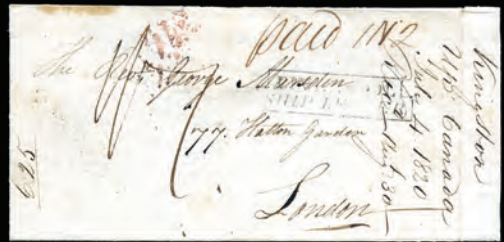 paid 1N2
The Revd. George Marsden
SHIP LE
77 Hatton Garden
London
Kingston
Up. Canada
July 4 1820
Aug 30
625